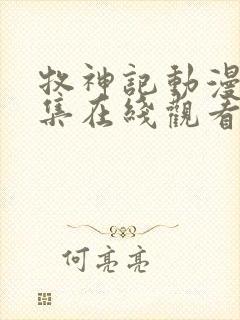 牧神記動漫
集在綫觀看
何亮亮